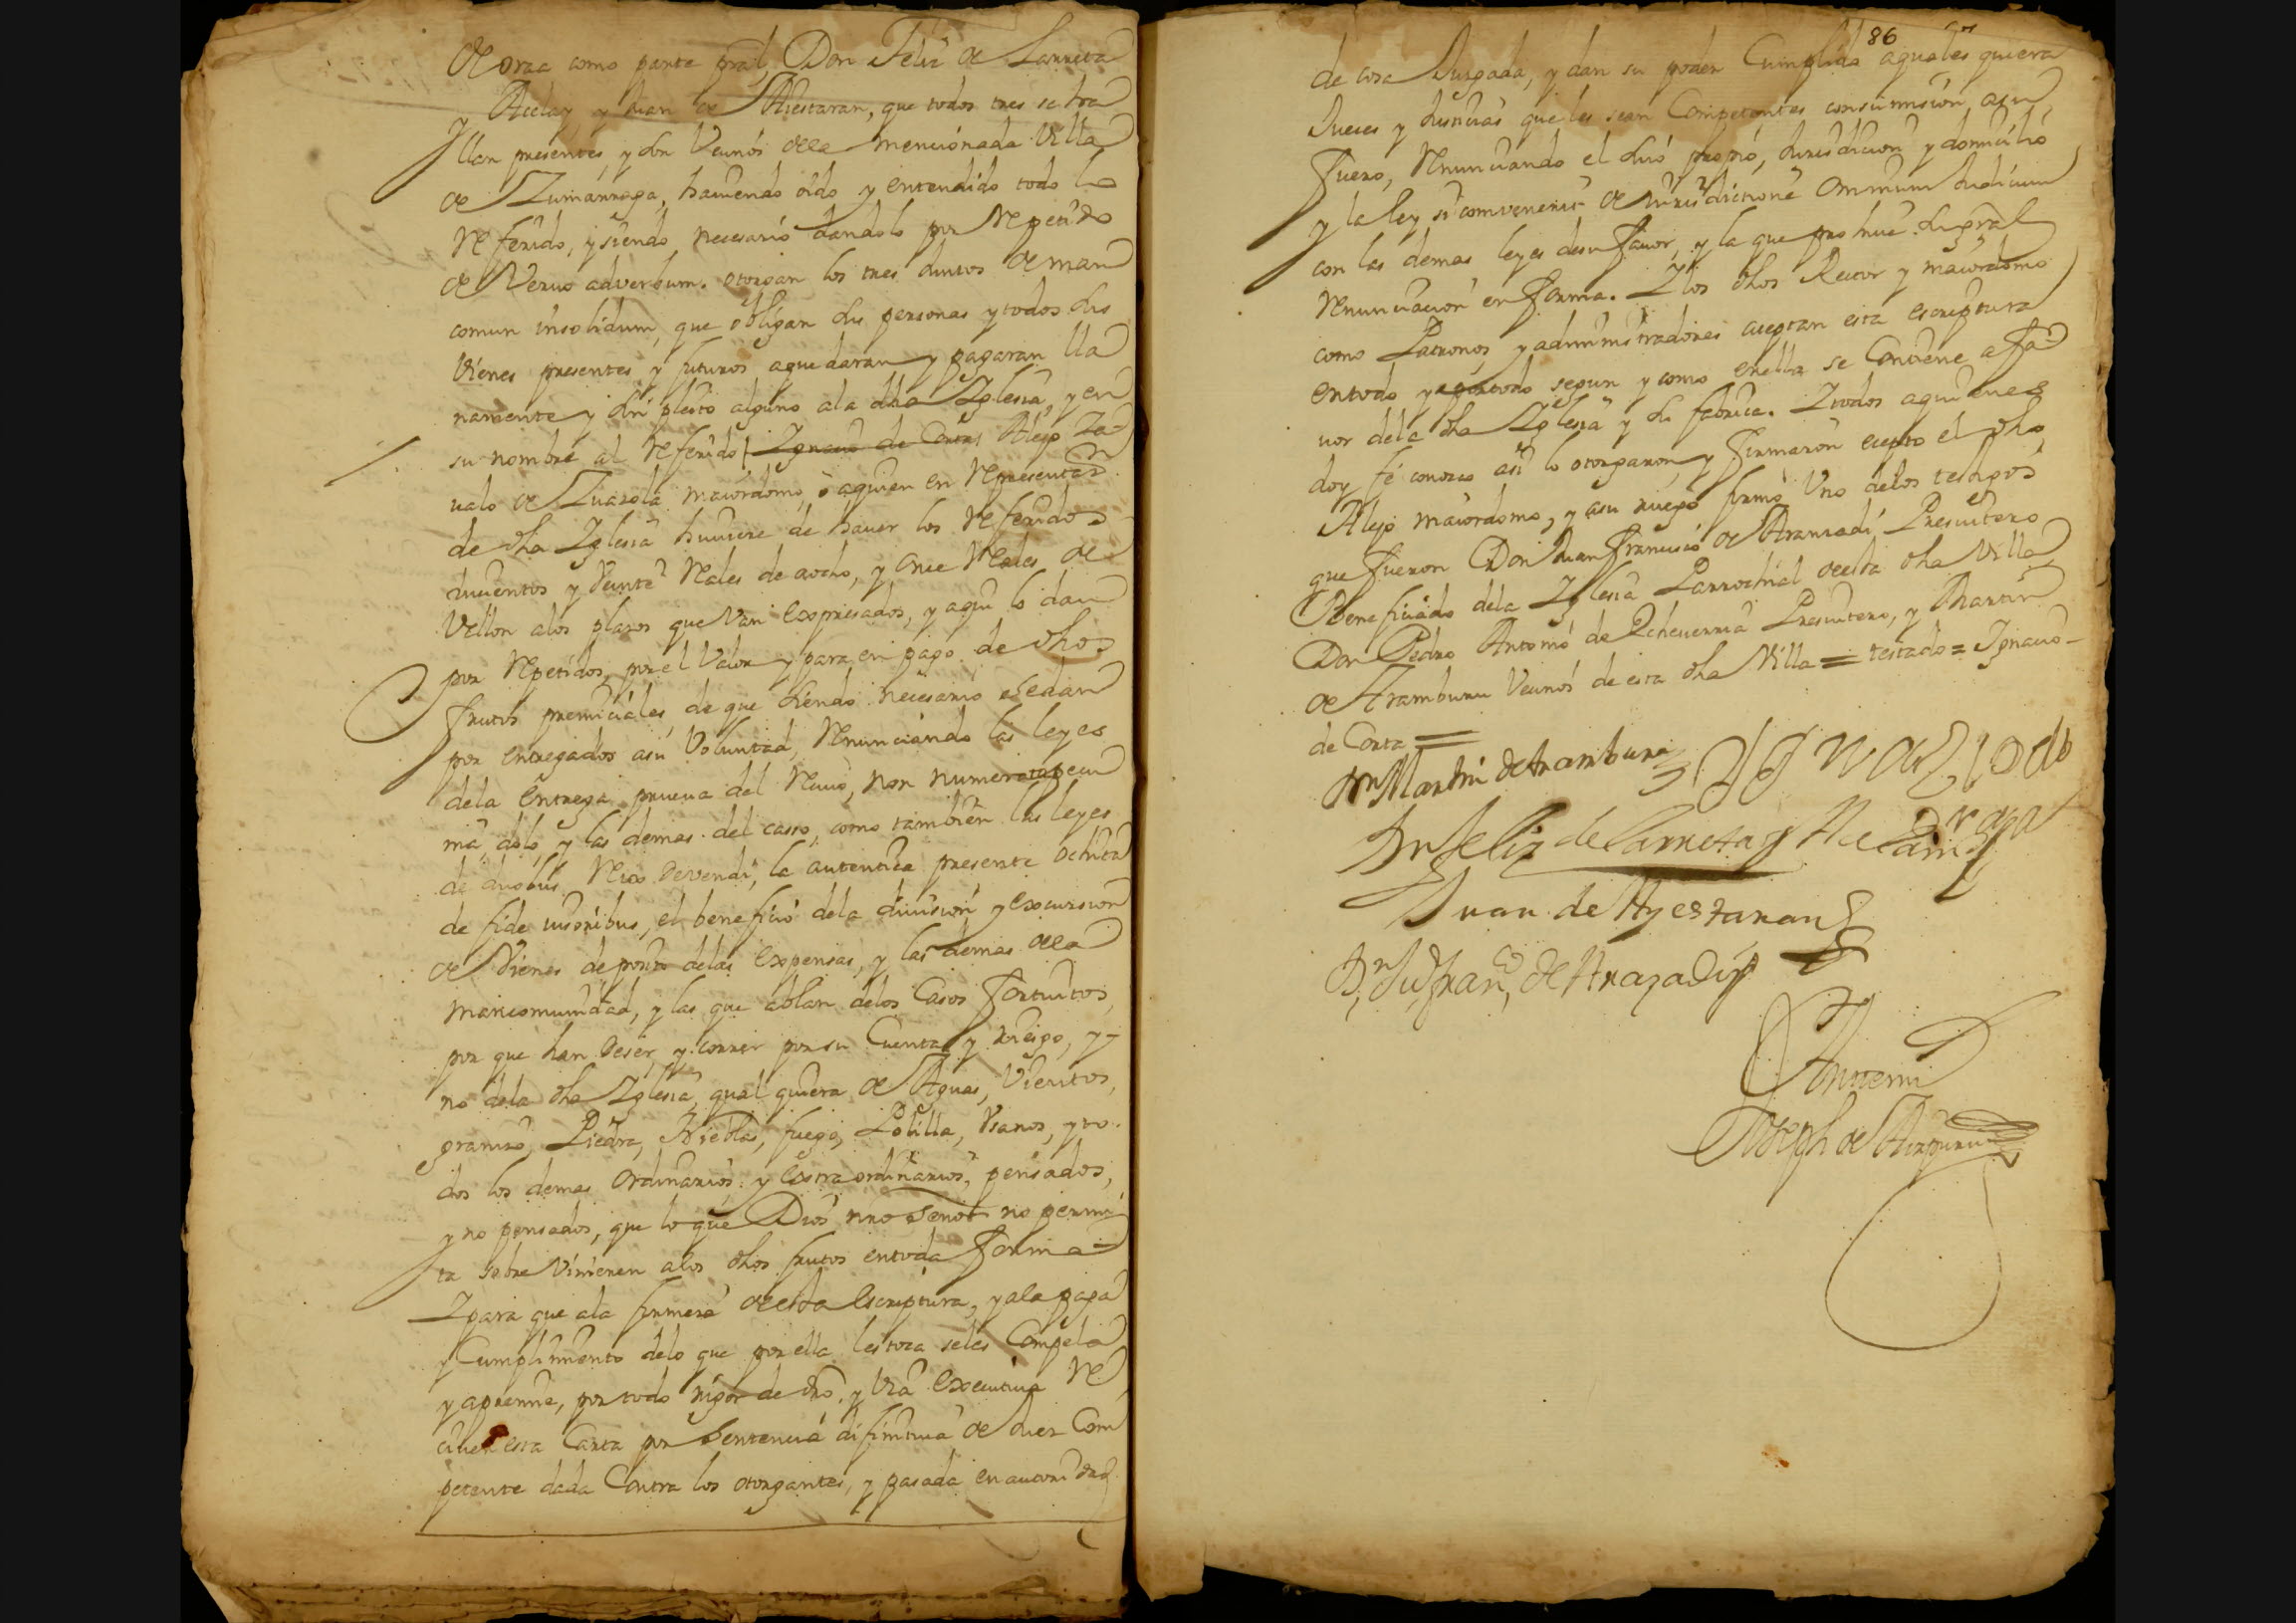 de oraa como parte pral, Don Feliz de Larreta
y Acelay y Juan de Aiestaran, que todos tres se ha
llan presentes, y son Vecinos dela mencionada Villa
de Zumarraga, haviendo oido y entendido todo lo
Referido, y siendo necesario dandolo por Repetido
de Vervo adverbum. otorgan los tres Juntos de man
comun insolidum, que obligan sus personas y todos sus
Vienes presentes y futuros aque daran y pagaran lla
namente y sin pleito alguno ala dha Iglesia, y en
su nombre al Referido Ignacio de Corta Alejo
de Zuazola maiordomo, ò aquien en Representaon
de dha Iglesia huviere de haver los Referidos
Ducientos y Veinte Reales de aocho, y once Reales de
Vellon alos plazos que Van Expresados, y aqui lo dan
por Repetidos, por el Valor y para en pago de dhos
frutos premiciales, de que siendo necesario se dan
por entregados asu Voluntad, Renunciando las leyes
dela Entrega prueva del Recivo, non numerata pecu
nia dolo, y las demas del casso, como tambien las leyes
de duobus Reos devendi, la autentica presente ochita
de fide iusoribus, el beneficio dela division y excursion
de Vienes deposito delas Expensas, y las demas dela
mancomunidad, y las que ablan delos Casos fortuitos,
por que han Deser, y correr por su Cuenta y Riesgo, y
no dela dha Iglesia, qual quiera de Aguas, Vientos,
granizo, Piedra, Nieblas, fuego, Polilla, Vsanos, y to
dos los demas Ordinarios y Extraordinarios, pensados,
y no pensados, que lo que Dios nro Senor no permi
ta sobre Vinieren alos dhos frutos entoda forma =
Y para que ala firmeza desta Escriptura, y ala paga
y Cumplimiento delo que por ella les toca seles Compela
y apremie, por todo rigor de dro. y Via Executiva Re
civen esta Carta por Sentencia difinitiva de Juez Com
petente dada Contra los otorgantes, y pasada en autoridad
86
de cosa Juzgada, y dan su poder Cumplido aquales quiera
Jueces y Justicias que les sean Competentes con sumision asu
fuero, Renunciando el suio propio, Jurisdicion y domicilio
y la ley si convenerit de Jurisdictione Omnium Judicum
con las demas leyes desu favor, y la que prohive la gral
Renunciacion en forma. Y los dhos Rector y maiordomo
como Patronos, y administradores aceptan esta escriptura
entodo y por todo segun y como enella se Contiene a fa
vor dela dha Iglesia y su fabrica. Y todos aquienes
doy fé conozco asi lo otorgaron, y firmaron, ecepto el dho
Alejo maiordomo, y asu ruego firmó Uno delos testigos
que fueron Don Juan Francisco de Aranzadi Presvitero
Beneficiado dela Iglesia Parrochial desta dha Villa
Don Pedro Antonio de Echeverria Presvitero, y Martin
de Aramburu Vecinos de esta dha Villa = testado = Ignacio
de Corta =
Martin de Aramburu
Dn Feliz de Larreta y Acelay
Juan de Ayestaran
Dn Ju Franco, de Aranzadi
Antemi
Joseph de Aizpuru